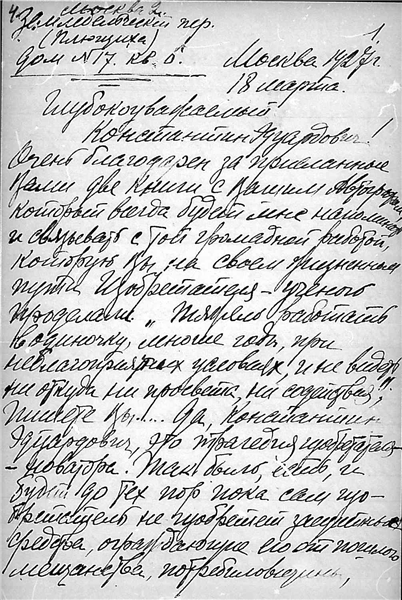 Москва 2.
Земледельческий пер.
(Плющиха)
дом №17, кв. 6.
1.
Москва 1927 г.
18 марта.
Глубокоуважаемый
Константин Эдуардович!
Очень благодарен за присланные
Вами две книги с Вашим автографом,
который всегда будет мне напоминать
и связывать с той громадной работой,
которую Вы, на своем жизненном
пути изобретателя – ученого
проделали. „Тяжело работать
в одиночку, многие годы, при
неблагоприятных условиях и не видеть
ни откуда ни просвета, ни содействия,"
пишете Вы.... Да, Константин
Эдуардович, это трагедия изобретателя
– новатора. Так было, есть, и
будет до тех пор пока сам изо-
бретатель не изобретет защитные
средства, ограждающие его от пошлого
мещанства,